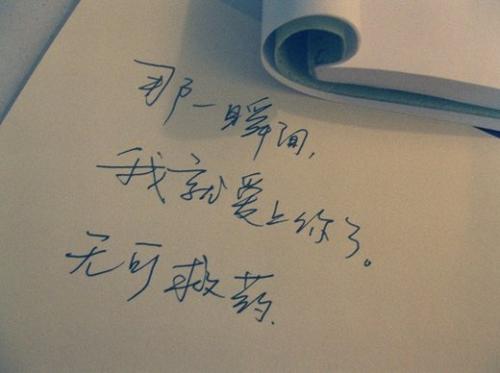 那一瞬间,
我就爱上你了。
无可救药.